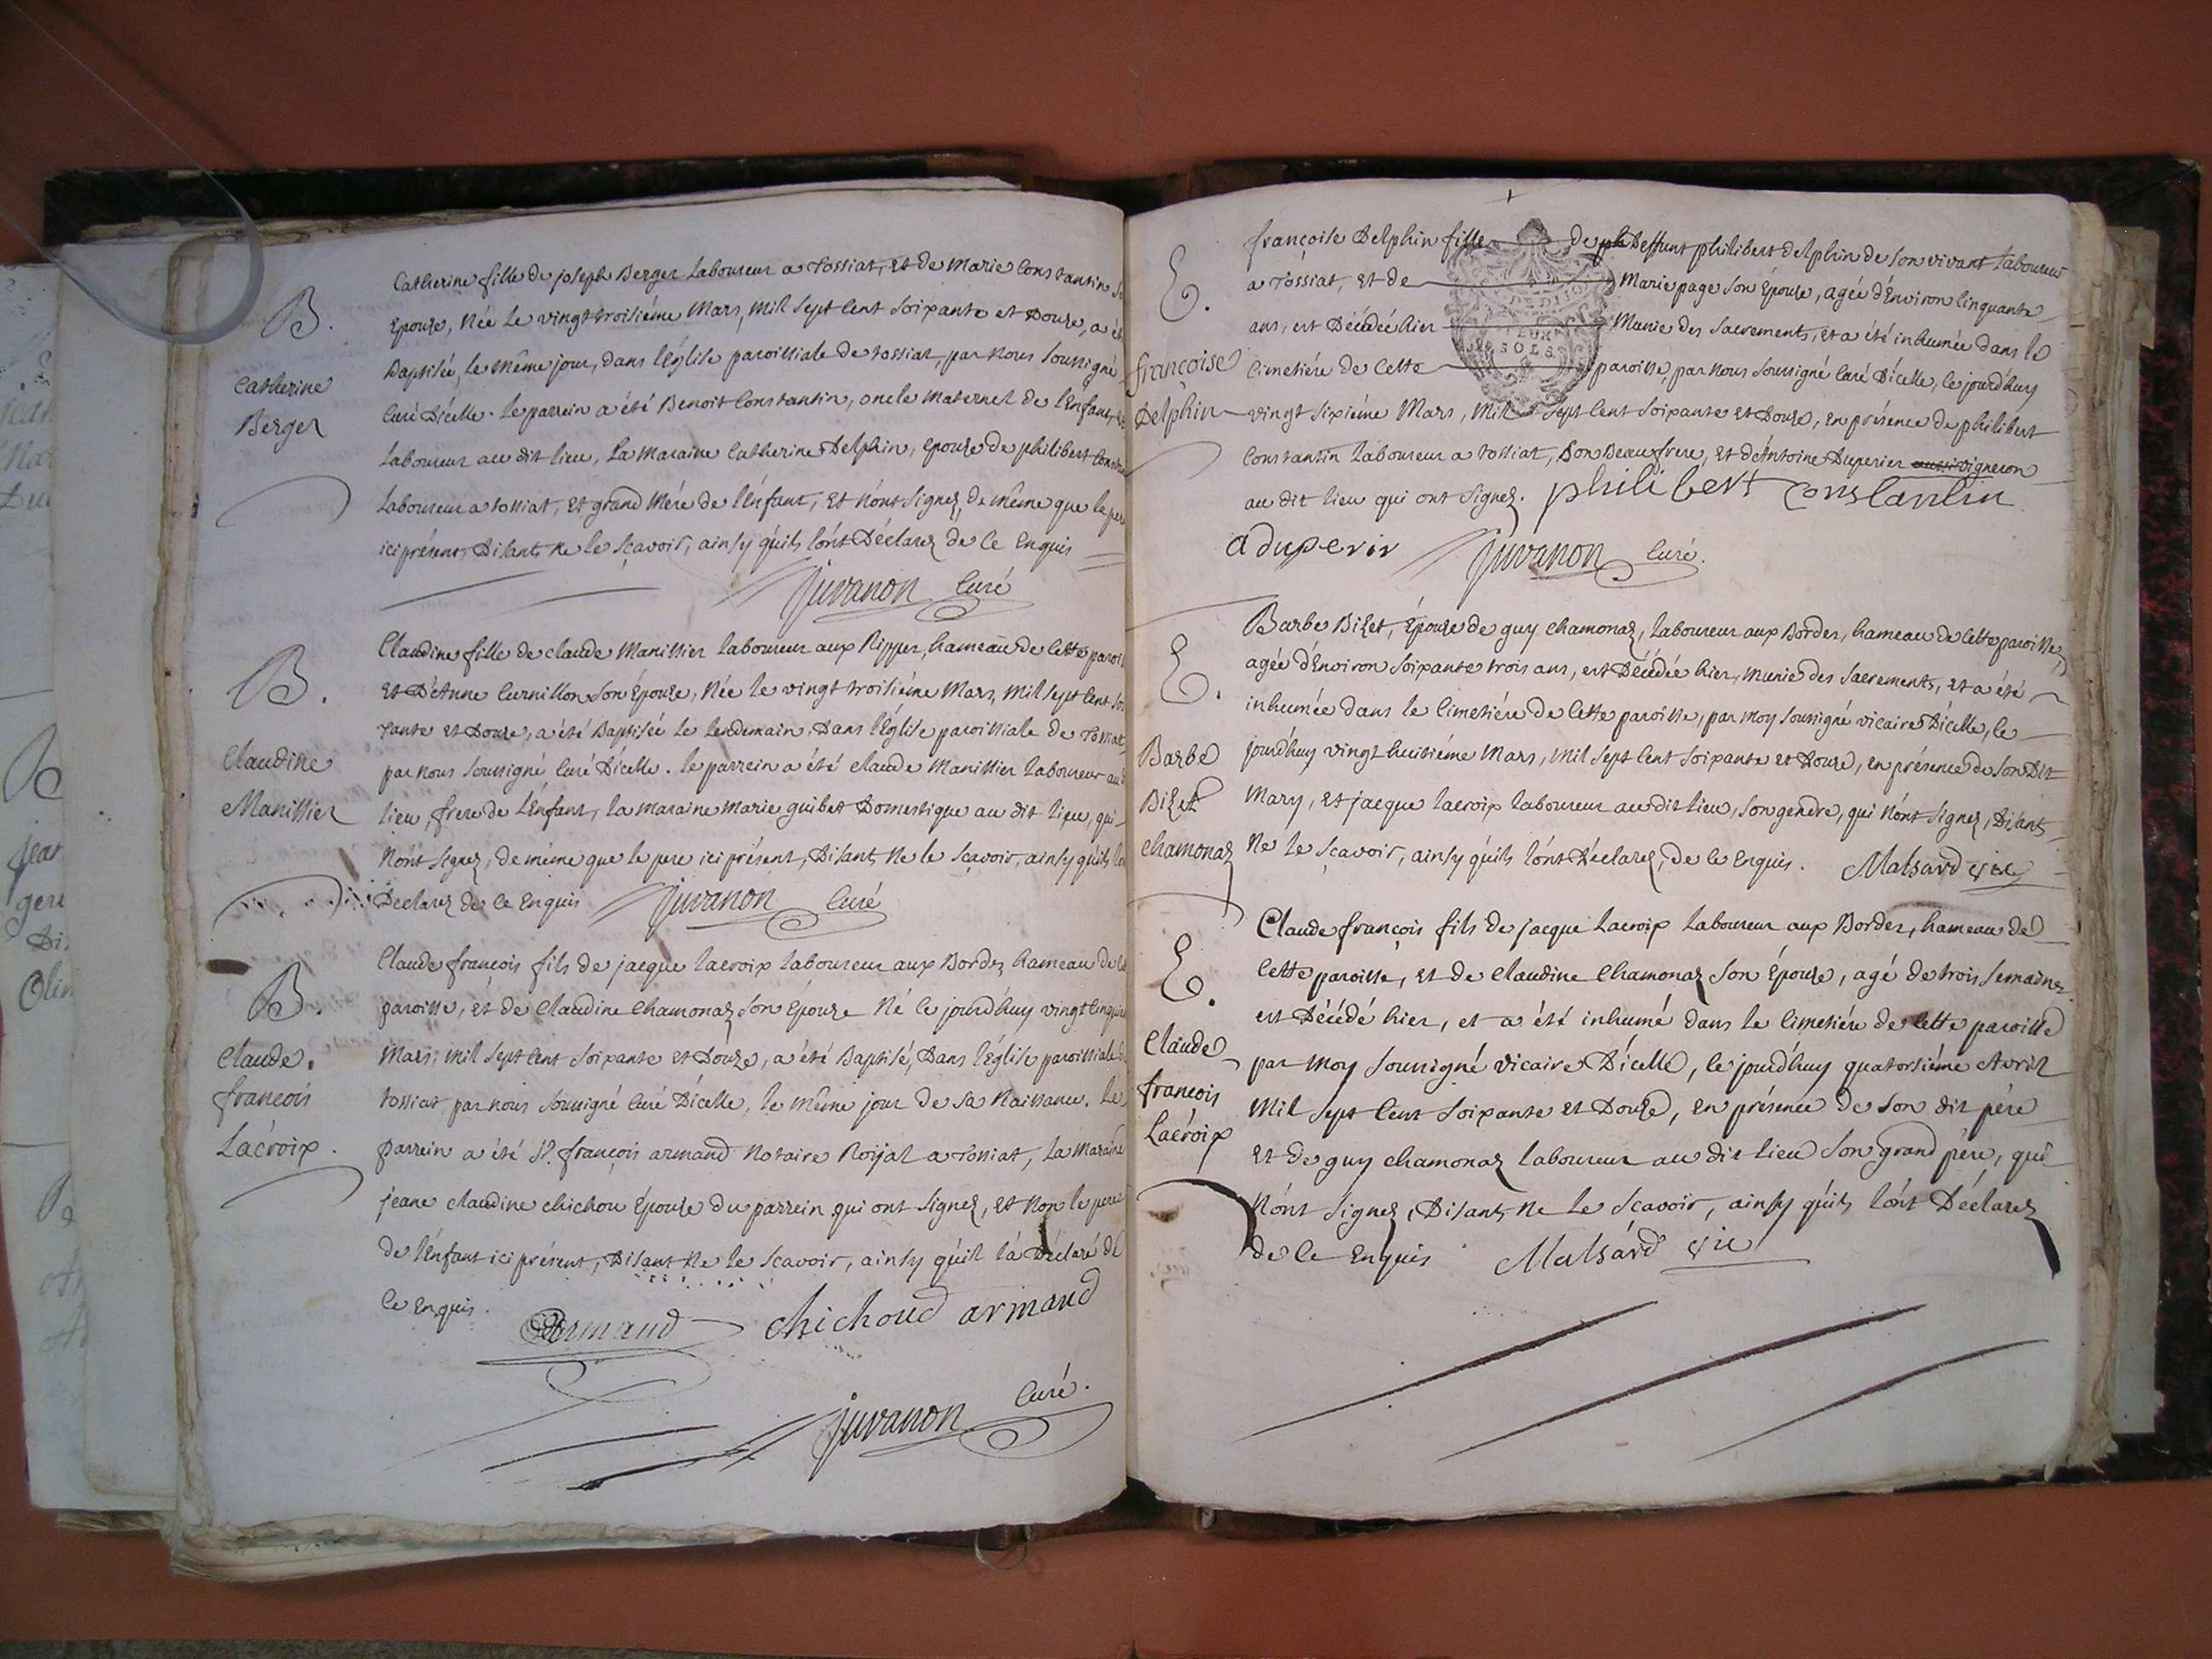 B.
Catherine
Berger
Catherine fille de joseph Berger Laboureur a tossiat, et de Marie Constantin
Epouse, Née le vingt troisiéme Mars, mil sept Cent soixante et Douze, a
Baptisée, le même jour, dans l'Église paroissiale de tossiat, par Nous soussigné
Curé D'icelle. le parrein a été Benoit Constantin, oncle Maternel de l'Enfant,
Laboureur au dit lieu, la Maraine Catherine Delphin, epouse de philibert
Laboureur a tossiat, et grand Mére de l'Enfant, et N'ont signez, de même que le
ici présent, Disants Ne le sçavoir, ainsy qu'ils l'ont Déclarez de ce Enquis
Juvanon Curé
B.
Claudine
Manissier
Claudine fille de claude Manissier laboureur aux Ripper, hameau de cette
et D'Anne Curnillon son Épouse, Née le vingt troisiéme Mars, mil sept Cent
xante et Douze, a été Baptisée le lendemain, Dans l'Église paroissiale de tossiat,
par Nous soussigné Curé D'icelle. le parrein a été claude Manissier laboureur
lieu, frere de l'Enfant, la Maraine Marie guibet Domestique au dit lieu, qui
N'ont signez, de même que le pere ici présent, Disants Ne le sçavoir, ainsy qu'ils
Déclarez de ce Enquis Juvanon Curé
B.
Claude.
françois
Lacroix.
Claude françois fils de jacque lacroix laboureur aux Bordes hameau de
paroisse, et de Claudine Chamonaz son Épouse Né ce jourd'huy vingt
Mars; mil sept Cent soixante et Douze, a été Baptisé, Dans l'Église paroissiale
tossiat par nous soussigné Curé D'icelle, le même jour de sa Naissance. Le
parrein a été Sr. françois armand Notaire Roijal a tossiat, La Maraine
jeane claudine chichou Épouse du parrein qui ont signez, et Non le pere
de l'Enfant ici présent, Disant Ne le sçavoir, ainsy qu'il l'a Déclaré de
ce Enquis.
Armand chichoud armand
Juvanon Curé.
E.
françoise
Delphin
françoise Delphin fille de ph Deffunt philibert delphin de son vivant laboureur
a tossiat, et de Marie page son Épouse, agée d'Environ Cinquante
ans, est Décédée hier Munie des Sacrements, et a été inhumée dans le
Cimetiére de Cette paroisse, par Nous soussigné Curé D'icelle, le jourd'huy
vingt sixiéme Mars, Mil sept Cent soixante et Douze, en présence de philibert
Constantin laboureur a tossiat, son Beaufrere, et d'Antoine Duperier aussi vigneron
au dit lieu qui ont signez. philibert constantin
SOLS
a duperir Juvanon Curé.
E.
Barbe
Bizet
Chamonaz
Barbe Bizet, Épouse de guy chamonaz, laboureur aux Bordes, hameau de Cette paroisse,
agée d'Environ soixante trois ans, est Décédée hier, munie des Sacrements, et a été
inhumée dans le Cimetiére de Cette paroisse, par moy soussigné vicaire D'icelle, le
jourd'huy vingt huitiéme Mars, mil sept Cent soixante et Douze, en présence de son Dit
Mary, et jacque lacroix laboureur au dit lieu, son gendre, qui N'ont signez, Disants
Ne le sçavoir, ainsy qu'ils l'ont Déclarez, de ce Enquis. Malsard vic
E.
Claude
françois
Lacroix
Claude françois fils de jacque Lacroix Laboureur aux Bordes, hameau de
Cette paroisse, et de Claudine Chamonaz son Épouse, agé de trois semaines
est Décédé hier, et a été inhumé dans le Cimetiére de Cette paroisse
par Moy soussigné vicaire D'icelle, le jourd'huy quatorsiéme Avril
Mil sept Cent soixante et Douze, en présence de son dit père
et de guy chamonaz laboureur au dit lieu son grand père, qui
N'ont signez, Disants Ne le sçavoir, ainsy qu'ils l'ont Déclarez
de ce Enquis Malsard vic